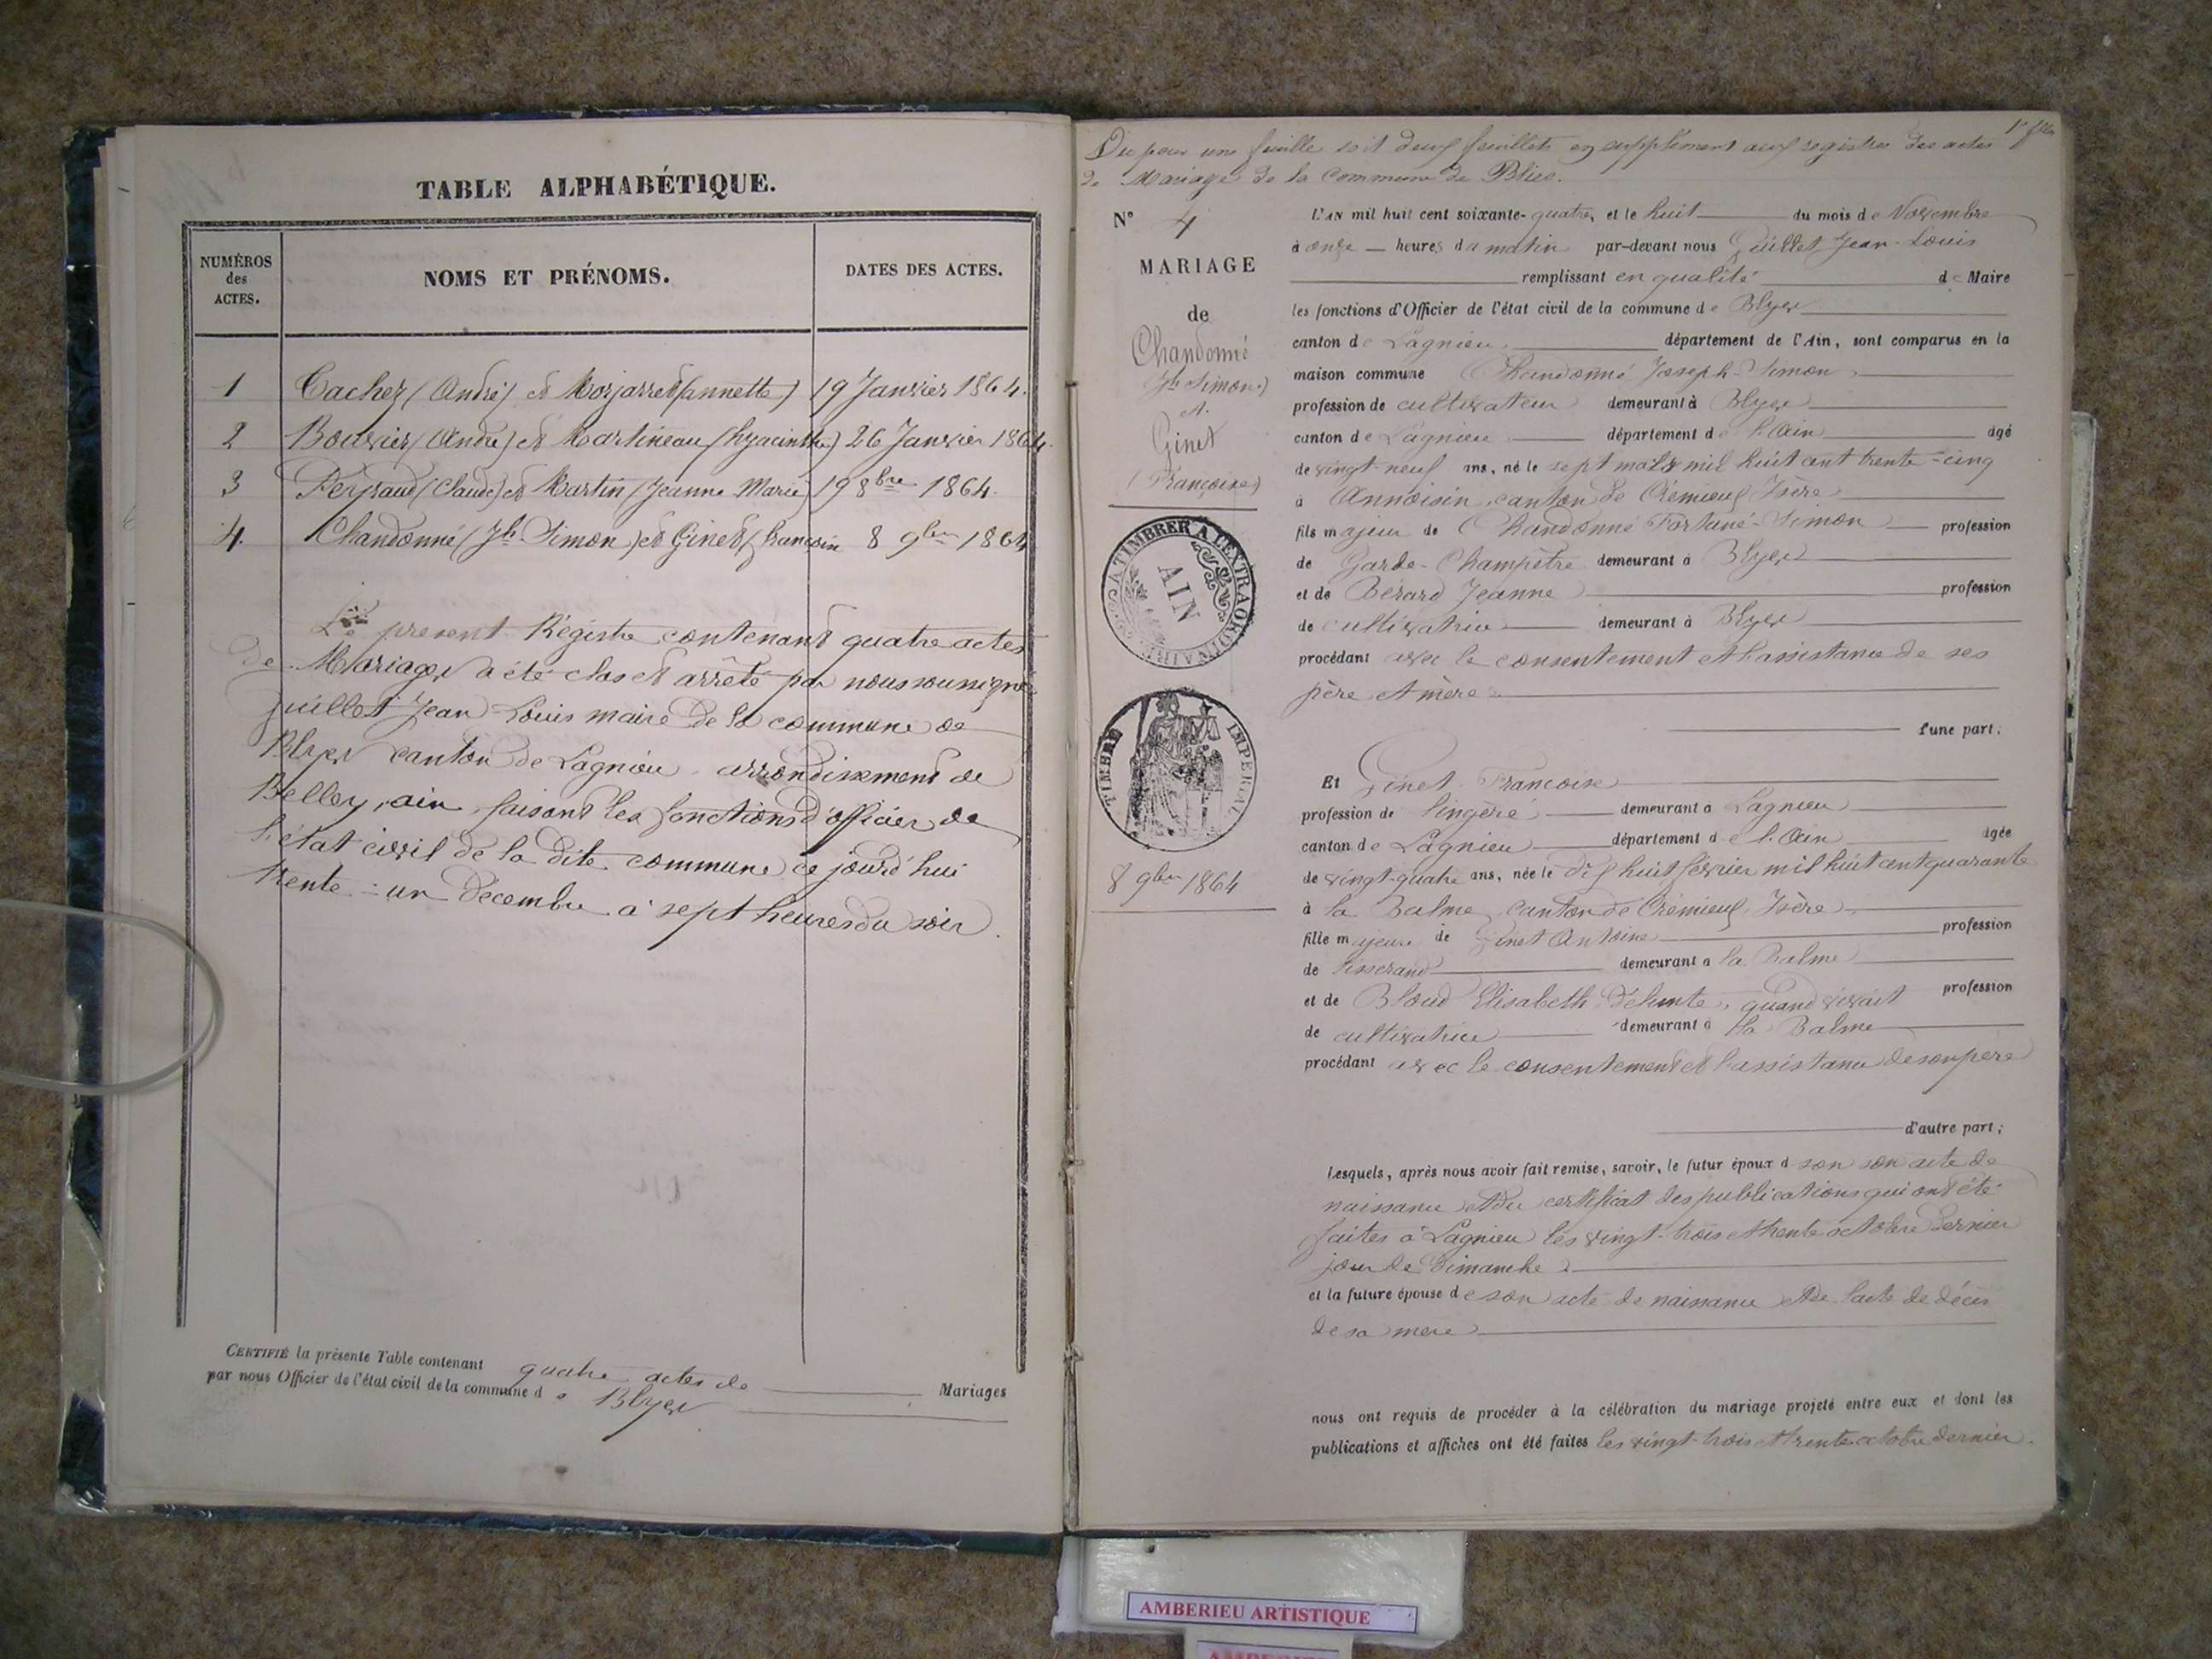 TABLE ALPHABÉTIQUE.
NUMÉROS
des
ACTES.
NOMS ET PRÉNOMS.
DATES DES ACTES.
1 Cacher (André) et Morjarret (annette) 19 Janvier 1864.
2 Bouvier (André) et Martineau (hyacinthe) 26 Janvier 1864.
3 Peyraud (Claude) et Martin (Jeanne Marie) 19 8bre 1864.
4. Chandonné (Jh Simon) et Ginet 8 9bre 1864
Le présent Régistre contenant quatre actes
de Mariages a été clos et arrêté par nous soussigné
Juillet Jean-Louis maire de la commune de
Blyes canton de Lagnieu arrondissement de
Belley, ain, faisant les fonctions d'officier de
l'état civil de la dite commune ce jourd'hui
trente-un décembre à sept heures du soir.
CERTIFIÉ la présente Table contenant quatre actes de Mariages
par nous Officier de l'état civil de la commune de Blyes
pour une feuille soit deux feuillets en supplément aux registres des actes
de Mariage de la Commune de Blies.
N° 4
MARIAGE
de
Chandonné
(Jh Simon)
et
Ginet
(Françoise)
A TIMBRER A L'EXTRAORDINAIRE
AIN
TIMBRE IMPERIAL
8 9bre 1864
L'AN mil huit cent soixante-quatre, et le huit du mois de Novembre
à onze heures du matin par-devant nous Juillet Jean-Louis
remplissant en qualité de Maire
les fonctions d'Officier de l'état civil de la commune de Blyes
canton de Lagnieu département de l'Ain, sont comparus en la
maison commune Chandonné Joseph-Simon
profession de cultivateur demeurant à Blyes
canton de Lagnieu département de l'Ain agé
de vingt-neuf ans, né le sept mars mil huit cent trente-cinq
à Annoisin, canton de Crémieux, Isère
fils majeur de Chandonné Fortuné-Simon profession
de Garde-Champêtre demeurant à Blyes
et de Bérard Jeanne profession
de cultivatrice demeurant à Blyes
procédant avec le consentement et l'assistance de ses
père et mère
d'une part;
Et Ginet Françoise
profession de lingère demeurant à Lagnieu
canton de Lagnieu département de l'Ain agée
de vingt-quatre ans, née le dix huit février mil huit cent quarante
à la Balme, canton de Crémieux, Isère
fille majeure de Ginet Antoine profession
de tisserand demeurant à la Balme
et de Bloud Elisabeth défunte, quand vivait profession
de cultivatrice demeurant à la Balme
procédant avec le consentement et l'assistance de son père
d'autre part;
Lesquels, après nous avoir fait remise, savoir, le futur époux d son son acte de
naissance et du certificat des publications qui ont été
faites à Lagnieu les vingt-trois et trente octobre dernier
jour de Dimanche
et la future épouse de son acte de naissance et de l'acte de décès
de sa mère
nous ont requis de procéder à la célébration du mariage projeté entre eux et dont les
publications et affiches ont été faites les vingt-trois et trente octobre dernier.
AMBERIEU ARTISTIQUE